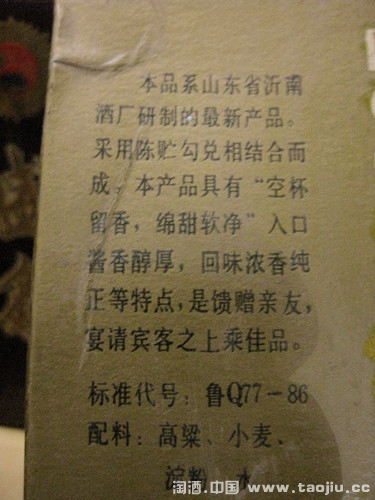 本品系山东省沂南
酒厂研制的最新产品。
采用陈贮勾兑相结合而
成。本产品具有“空杯
留香，绵甜软净”入口
酱香醇厚，回味浓香纯
正等特点，是馈赠亲友，
宴请宾客之上乘佳品。
标准代号：鲁Q77-86
配料：高粱、小麦、
淀粉、水
淘酒.中国 www.taojiu.cc